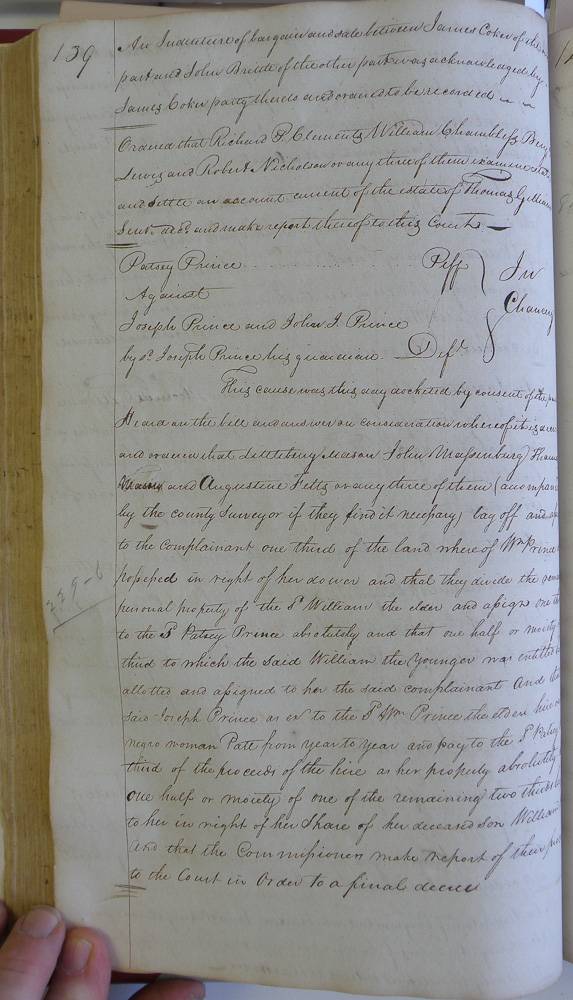 139
An Indenture of bargain and sale between James Coker of the
part and John Bride of the other part was acknowledged by
James Coker party thereto and ordered to be recorded
Ordered that Richard P. Clements William Chambless Benj
Lewis and Robert Nicholson or any three of them examine state
and settle an account current of the estate of Thomas Gilliam
decd. and make report thereof to this Court
Patsey Prince Plff
Against
Joseph Prince and John J. Prince
by sd. Joseph Prince his guardian. Deft
In
Chancery
This cause was this day docketed by consent of the
Heard on the bill and answer on consideration whereof it is
and ordered that Littleberry Mason John Massenburg
and Augustine Felts or any three of them (accompanied
by the county Surveyor if they find it necessary) lay off and
to the complainant one third of the land whereof Wm Prince
possessed in right of her dower and that they divide the
personal property of the sd William the elder and assign one
to the sd Patsey Prince absolutely and that one half or moiety
third to which the said William the Younger was entitled
allotted and assigned to her the said complainant And
said Joseph Prince as exr to the sd Wm Prince the elder hire
negro woman Patt from year to year and pay to the sd Patsey
third of the proceeds of the hire as her property absolutely
one half or moiety of one of the remaining two thirds
to her in right of her share of her deceased son William
And that the Commissioners make report of their
to the Court in order to a final decree
239-6